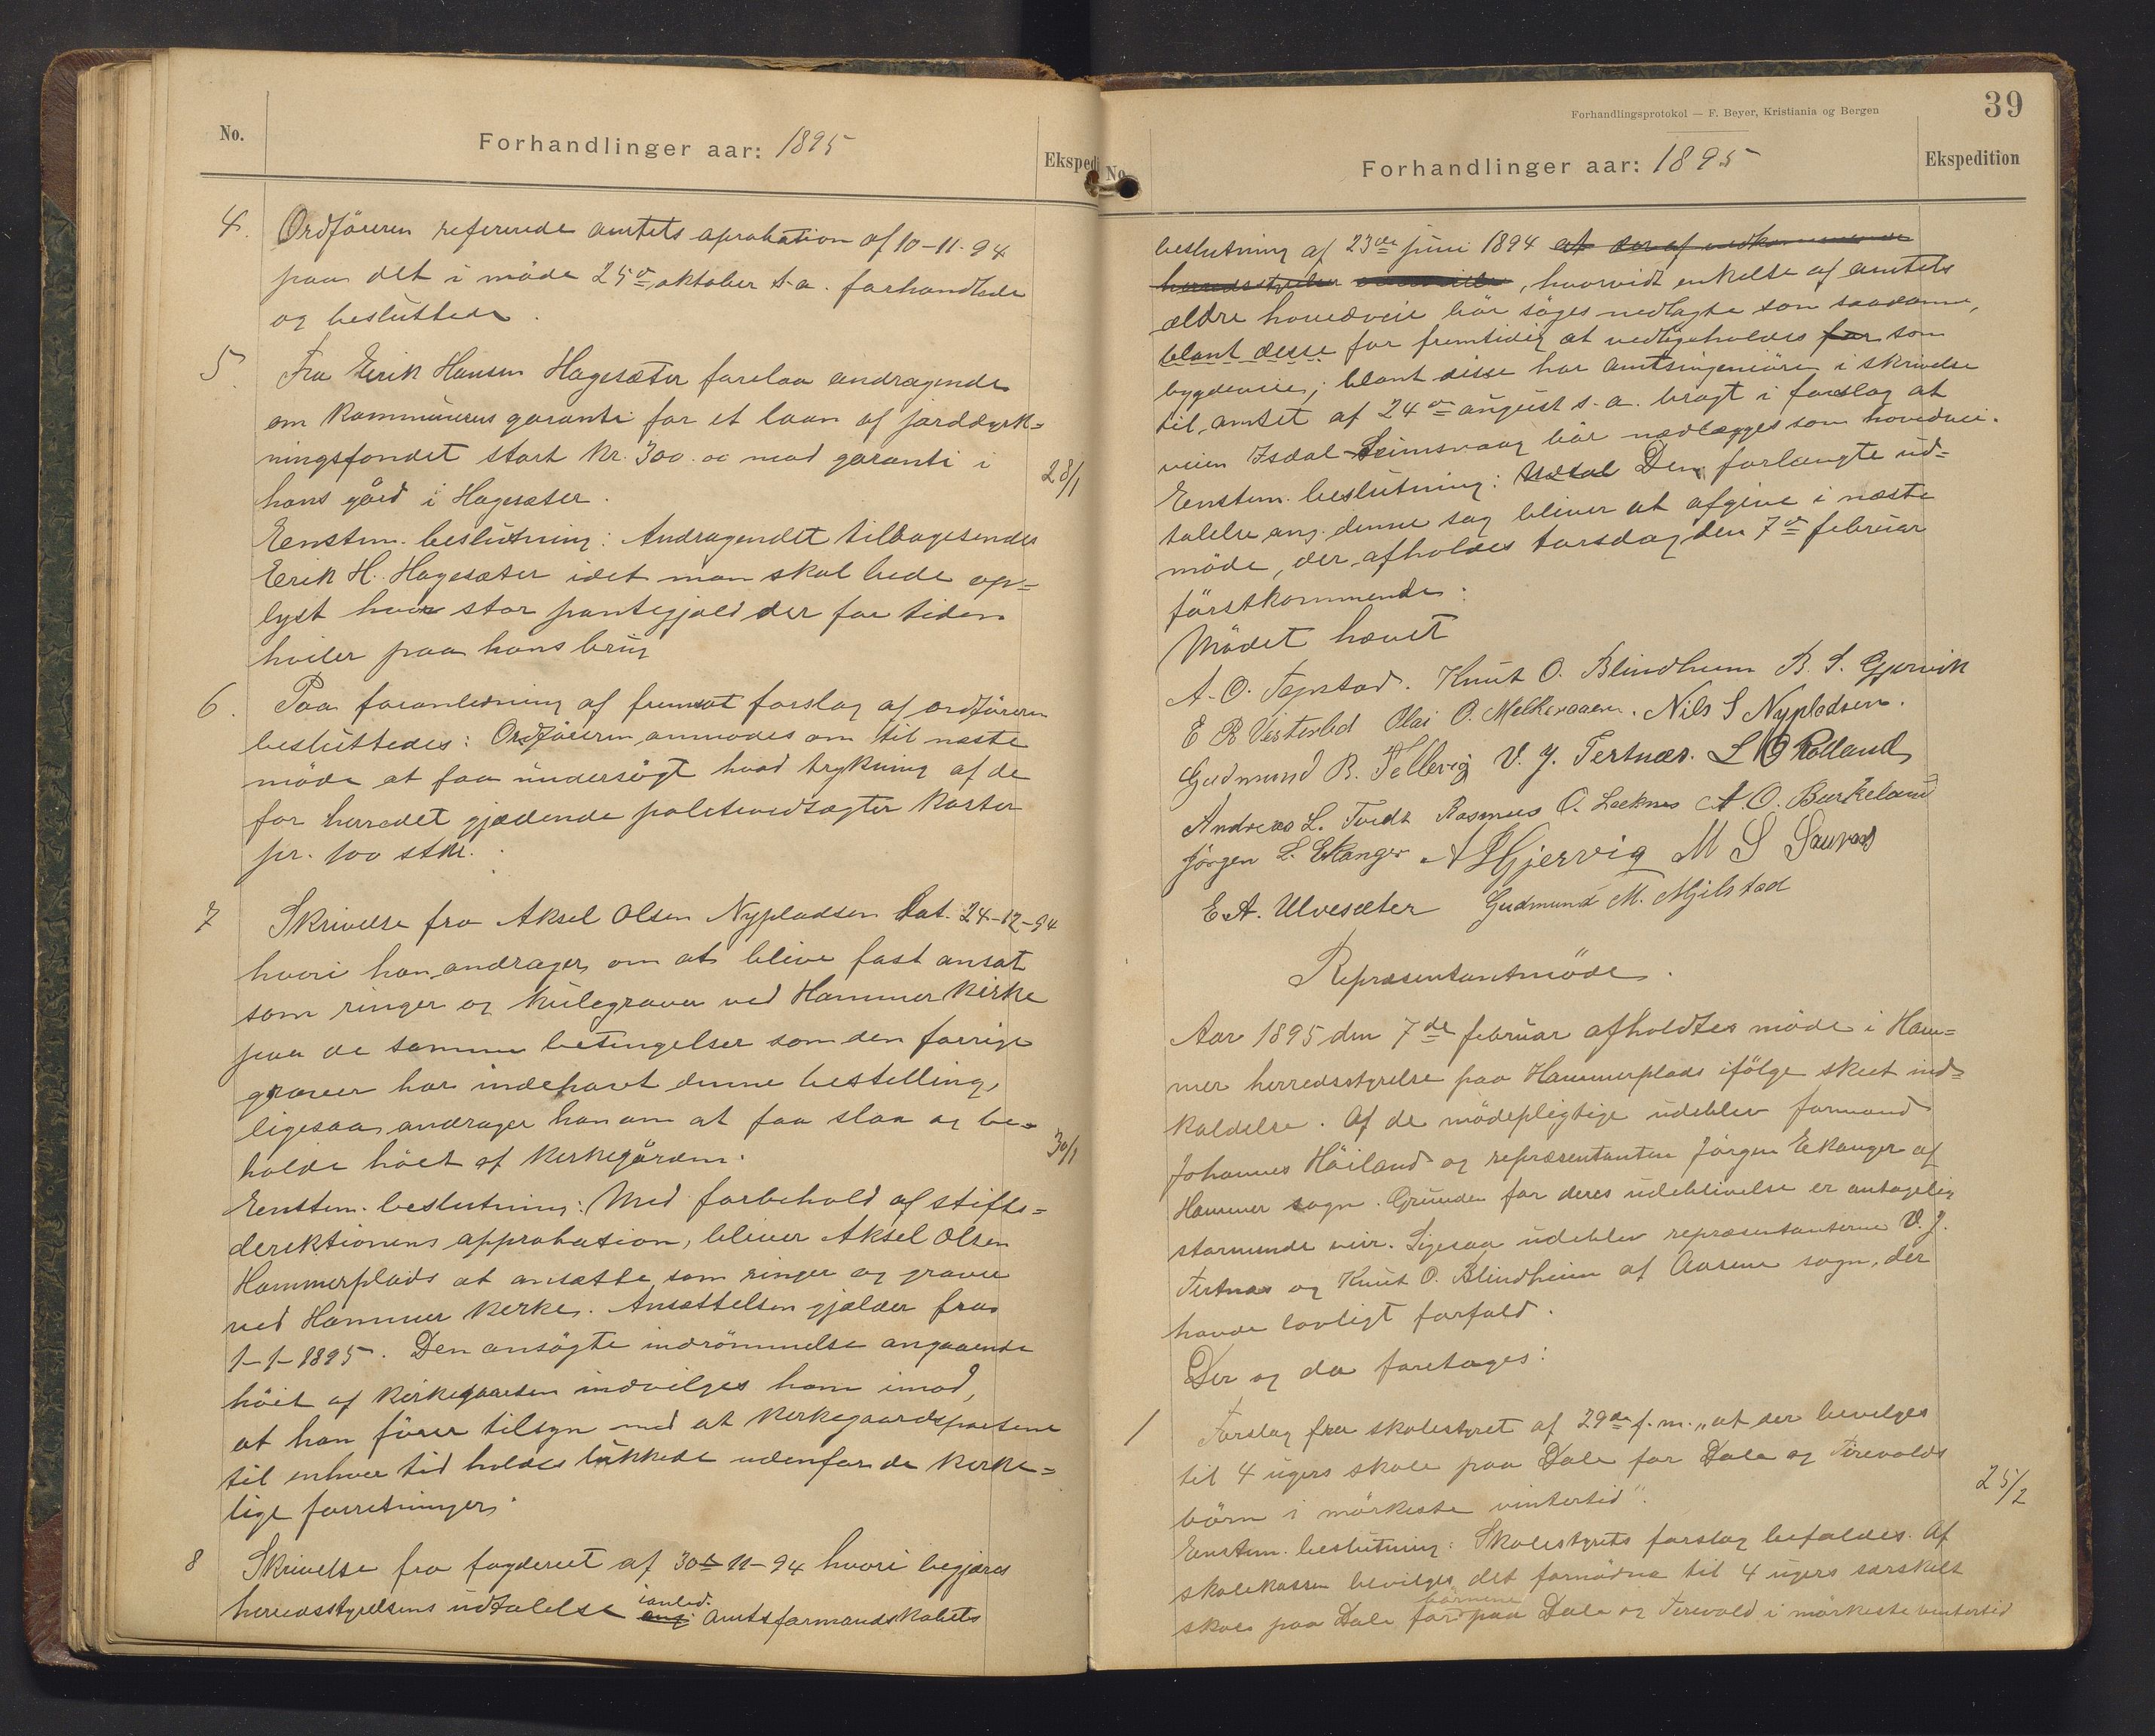 No.
Forhandlinger aar: 1895
Ekspedi
4. Ordføreren refererede amtets aprobation af 10-11-94
paa det i møde 25de oktober s.a. forhandlede
og besluttede.
5. Fra Eirik Hansen Hagesæter forelaa andragende
om kommunens garanti for et laan af jorddyrk=
ningsfondet stort kr. 300.00 mod garanti i
hans gård i Hagesæter.
28/1
Eenstem. beslutning: Andragendet tilbagesendes
Eerik H. Hagesæter idet man skal bede op=
lyst hvor stor pantegjæld der for tiden
hviler paa hans brug
6. Paa foranledning af fremsat forslag af ordføreren
besluttedes: Ordføreren anmodes om til næste
møde at faa undersøgt hvad trykning af de
for herredet gjældende politivedtægter koster
pr. 100 stkr.
7 Skrivelse fra Aksel Olsen Nypladsen dat. 24-12-94
hvori han andrager om at blive fast ansat
som ringer og kulegraver ved Hammer kirke
paa de samme betingelser som den forrige
graver har indehavt denne bestilling,
ligesaa andrager han om at faa slaa og be=
holde høiet af kerkegården.
30/1
Eenstem. beslutning: Med forbehold af stifts=
derektionens approbasion, bliver Aksel Olsen
Hammerplads at ansætte som ringer og graver
ved Hammer kerke. Ansættelsen gjælder fra
1-1-1895. Den ansøgte indrømmelse angaaende
høiet af kirkegaarden indvilges ham imod,
at han fører tilsyn med at kerkegaardsportene
til enhver tid holdes lukkede udenfor de kerke=
lige forretninger.
8 Skrivelse fra fogderiet af 30te 11-94 hvori begjæres
herredsstyrelsens udtalelse ianled. ang. amtsformandskabets
39
Forhandlingsprotokol — F. Beyer, Kristiania og Bergen
No.
Forhandlinger aar: 1895
Ekspedition
beslutning af 23de juni 1894 at der af vedkommende
herredsstyrelser , hvorvidt enkelte af amtets
ældre hovedveie bør søges nedlagte som saadanne,
blant desse for fremtidig at vedligeholdes for som
bygdeveie; blant disse har amtsingeniøren i skrivelse
til amtet af 24de august s.a. bragt i forslag at
veien Isdal-Seimsvaag bør nedlægges som hovedvei.
Eenstem. beslutning: Den forlangte ud=
talelse ang. denne sag bliver at afgive i næste
møde, der afholdes torsdag den 7de februar
førstkommende.
Mødet hævet
A. O. Tepstad. Knut O. Blindheim B. S. Gjervik
E R Vesterlid Olai O. Melkeraaen. Nils S Nypladsen.
Gudmund R. Tellevig V. J. Tertnæs. L O Rolland
Andreas L. Tvedt Rasmus O. Leeknes A. O. Burkeland
Jørgen L. Ekanger A Hjervig M S Sauraas
E. A. Ulvesæter Gudmund M. Mjelstad
Repræsentantmøde.
Aar 1895 den 7de februar afholdtes møde i Ham=
mer herredsstyrelse paa Hammerplads ifølge skeet ind=
kaldelse. Af de mødepligtige udeblev formand
Johannes Høiland og repræsentanten Jørgen Ekanger af
Hammer sogn. Grunden for deres udeblivelse er antagelig
stormende veir. Ligesaa udeblev repræsentanterne V. J.
Tertnæs og Knut O. Blindheim af Aasene sogn, der
havde lovligt forfald.
Der og da foretoges:
1 Forslag fra skolestyret af 29de f.m. „at der bevilges
til 4 ugers skole paa Dale for Dale og Tirevolds
børn i mørkeste vintertid".
25/2
Eenstem. beslutning: Skolestyrets forslag befaldes. Af
skolekassen bevilges det fornødne til 4 ugers særskilt
skole paa Dale for børnene paa Dale og Tirevold i mørkeste vintertid